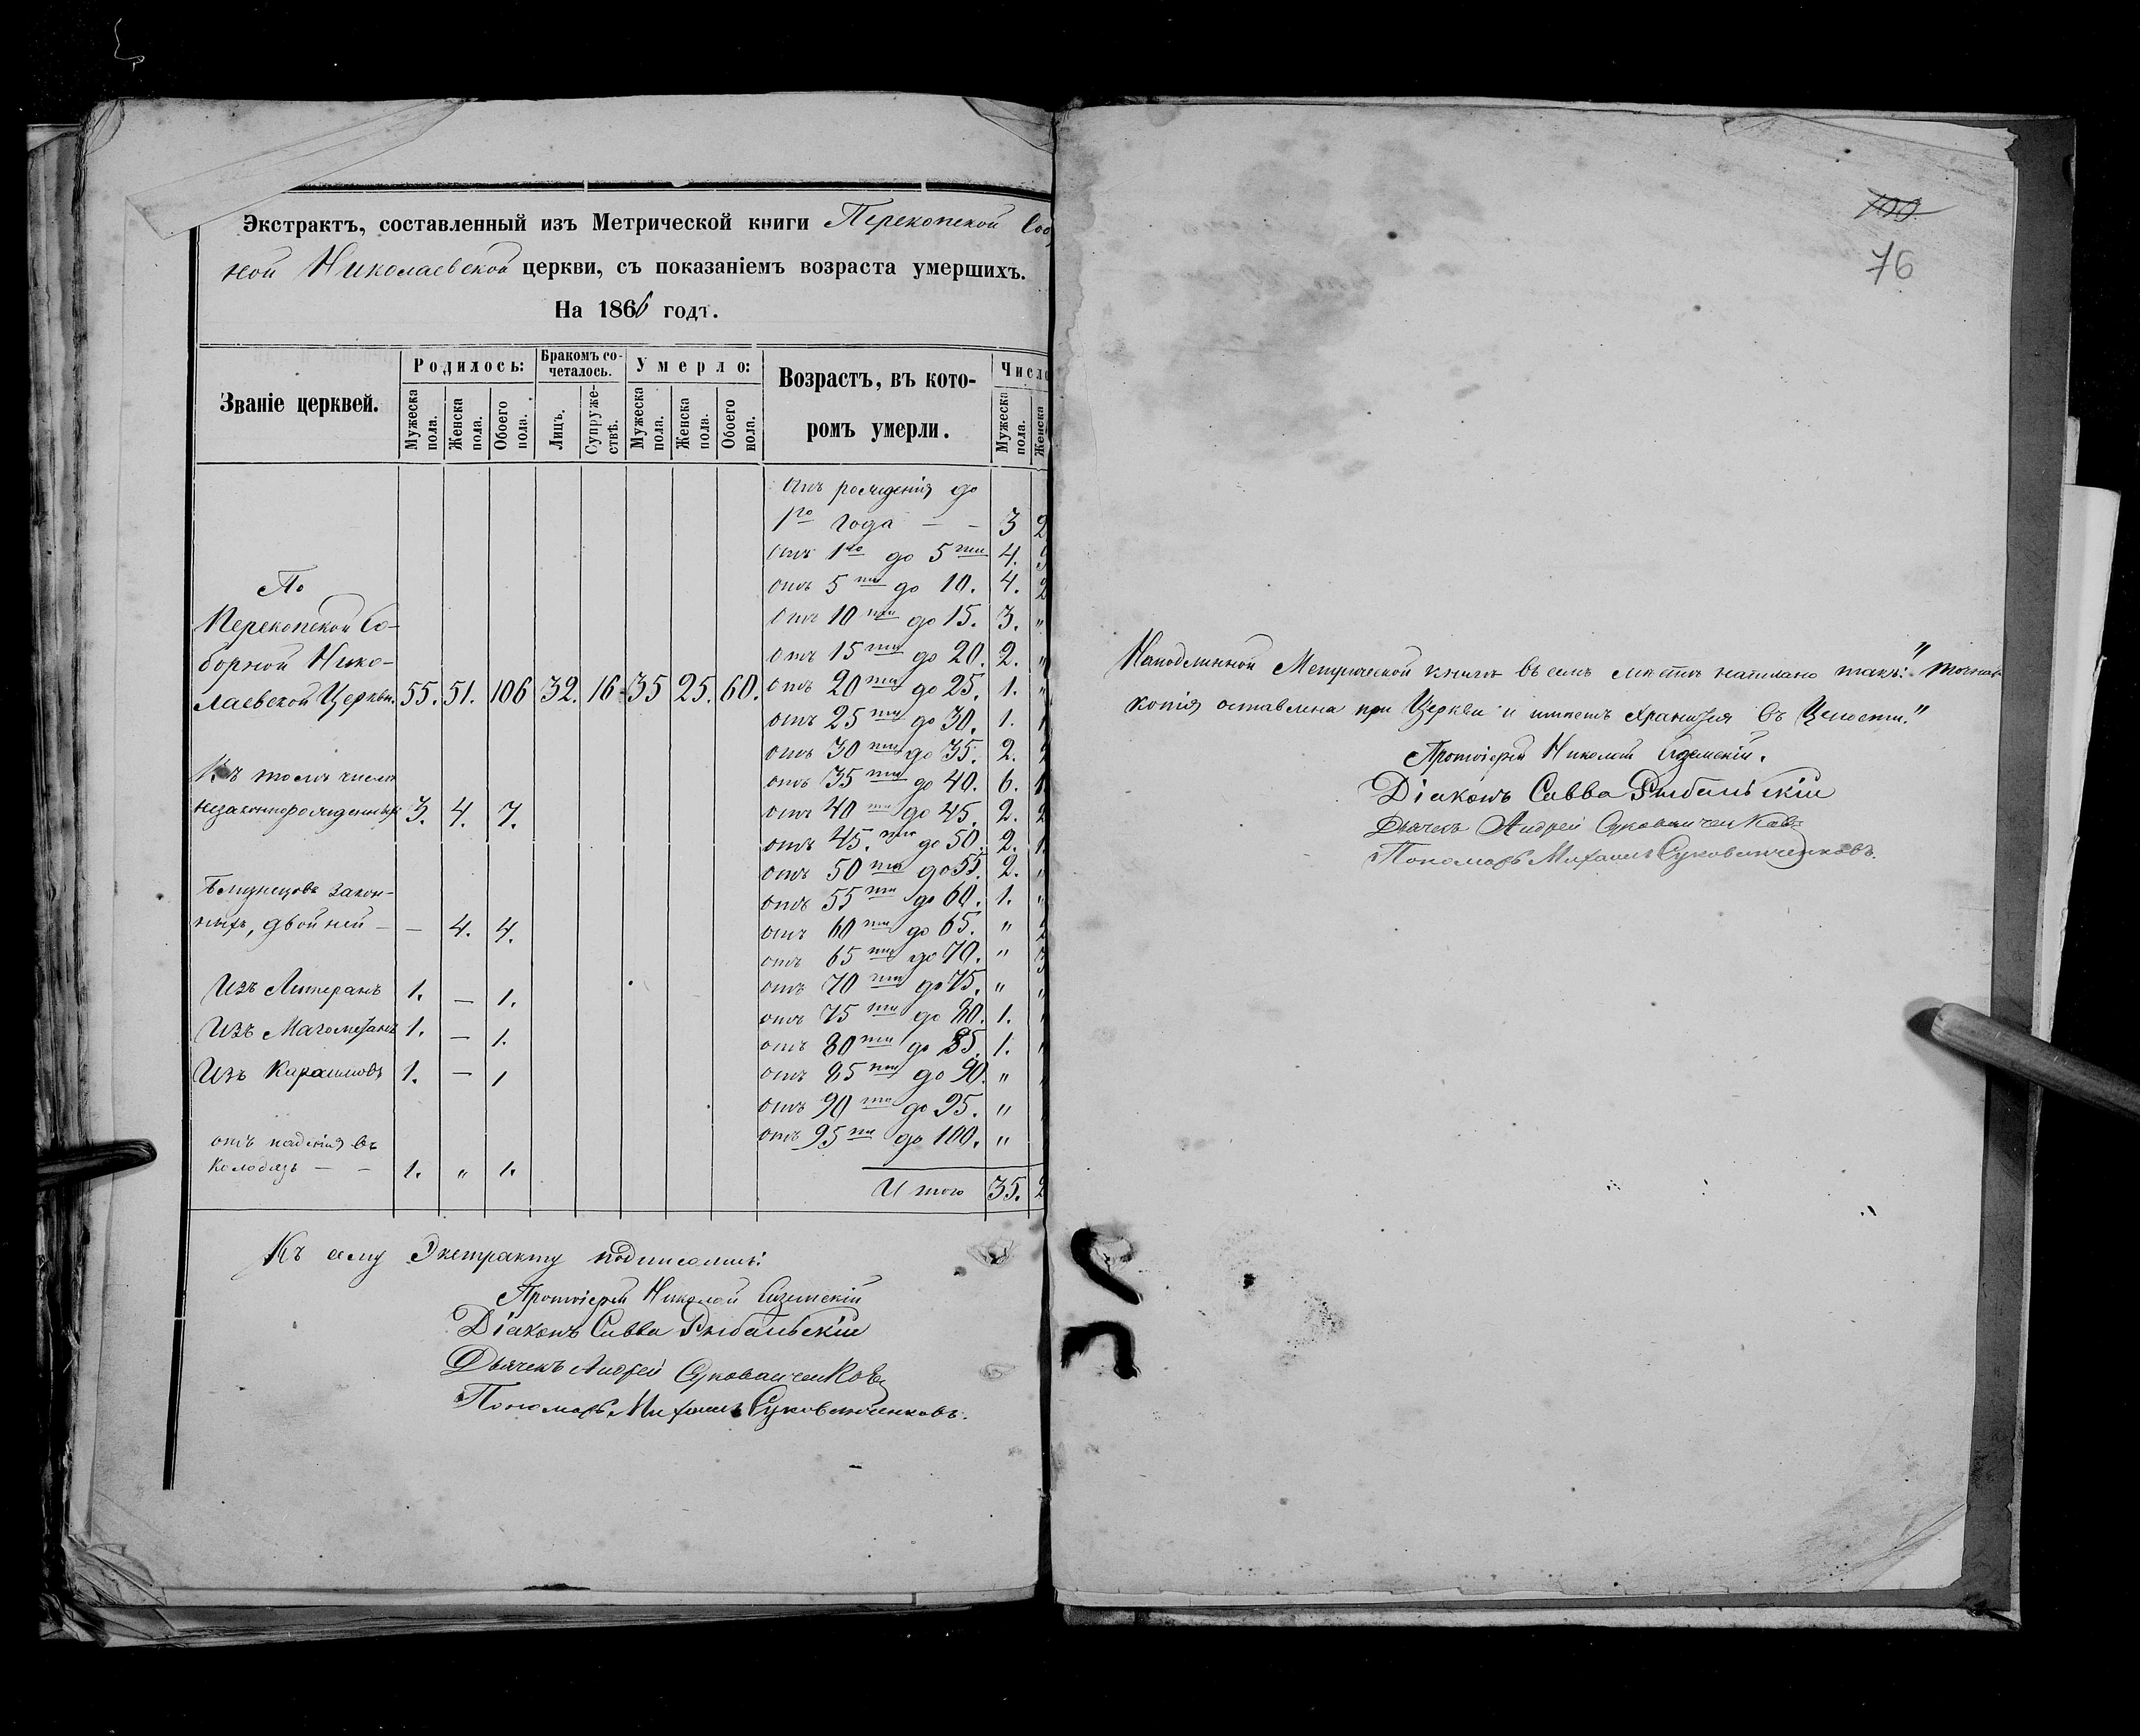 Экстрактъ, составленный изъ Метрической книги Перекопской Собор
ной Николаевской церкви, съ показаніемъ возраста умершихъ.
На 1866 годъ.
Званіе церквей.
Родилось:
Бракомъ со-
четалось.
Умерло:
Возрастъ, въ кото-
ромъ умерли.
Число
Мужеска пола.
Женска пола.
Обоего пола.
Лицъ.
Супруже-
ствъ.
Мужеска пола.
Женска пола.
Обоего пола.
Мужеска пола.
Женска
По
Перекопской Со-
борной Нико-
лаевской Церкви. 55. 51. 106 32. 16 35 25. 60.
Въ томъ числѣ
незаконнорожденныхъ 3. 4. 7.
Близнецовъ закон-
ныхъ, двойней — — 4. 4.
Изъ Лютеранъ 1. — 1.
Изъ Магометанъ 1. — 1.
Изъ Караимовъ 1. — 1
отъ паденія въ
колодязь — — 1. „ 1.
Отъ рожденія до
1го года — — 3 2
Отъ 1го до 5ти 4.
отъ 5ти до 10. 4. 2
Отъ 10ти до 15. 3. „
Отъ 15ти до 20. 2. „
Отъ 20ти до 25. 1. „
отъ 25ти до 30. 1. 1
отъ 30ти до 35. 2.
отъ 35ти до 40. 6. 1
отъ 40ти до 45. 2. 2
отъ 45.ти до 50. 2. 1.
отъ 50ти до 55. 2. „
отъ 55ти до 60. 1. „
отъ 60ти до 65. „ 2
отъ 65ти до 70. „ 3
отъ 70ти до 75. „ „
отъ 75ти до 80. 1.
отъ 80ти до 85. 1.
отъ 85ти до 90. „
отъ 90ти до 95. „
отъ 95ти до 100. „
Итого 35. 2
Къ сему Экстракту подписались:
Протоіерей Николай
Діаконъ Савва Рыбальскій
Дьячекъ Андрей Суковаиченковъ
Пономарь Михаилъ Суковаиченковъ.
100
76
На подлинной Метрической книгѣ въ семъ мѣстѣ написано такъ: „точная
копія оставлена при Церкви и имѣетъ хранится въ Целости."
Протоіерей Николай
Діаконъ Савва Рыбальскій
Дьячекъ Андрей Суковаиченковъ
Пономарь Михаилъ Суковаиченковъ.